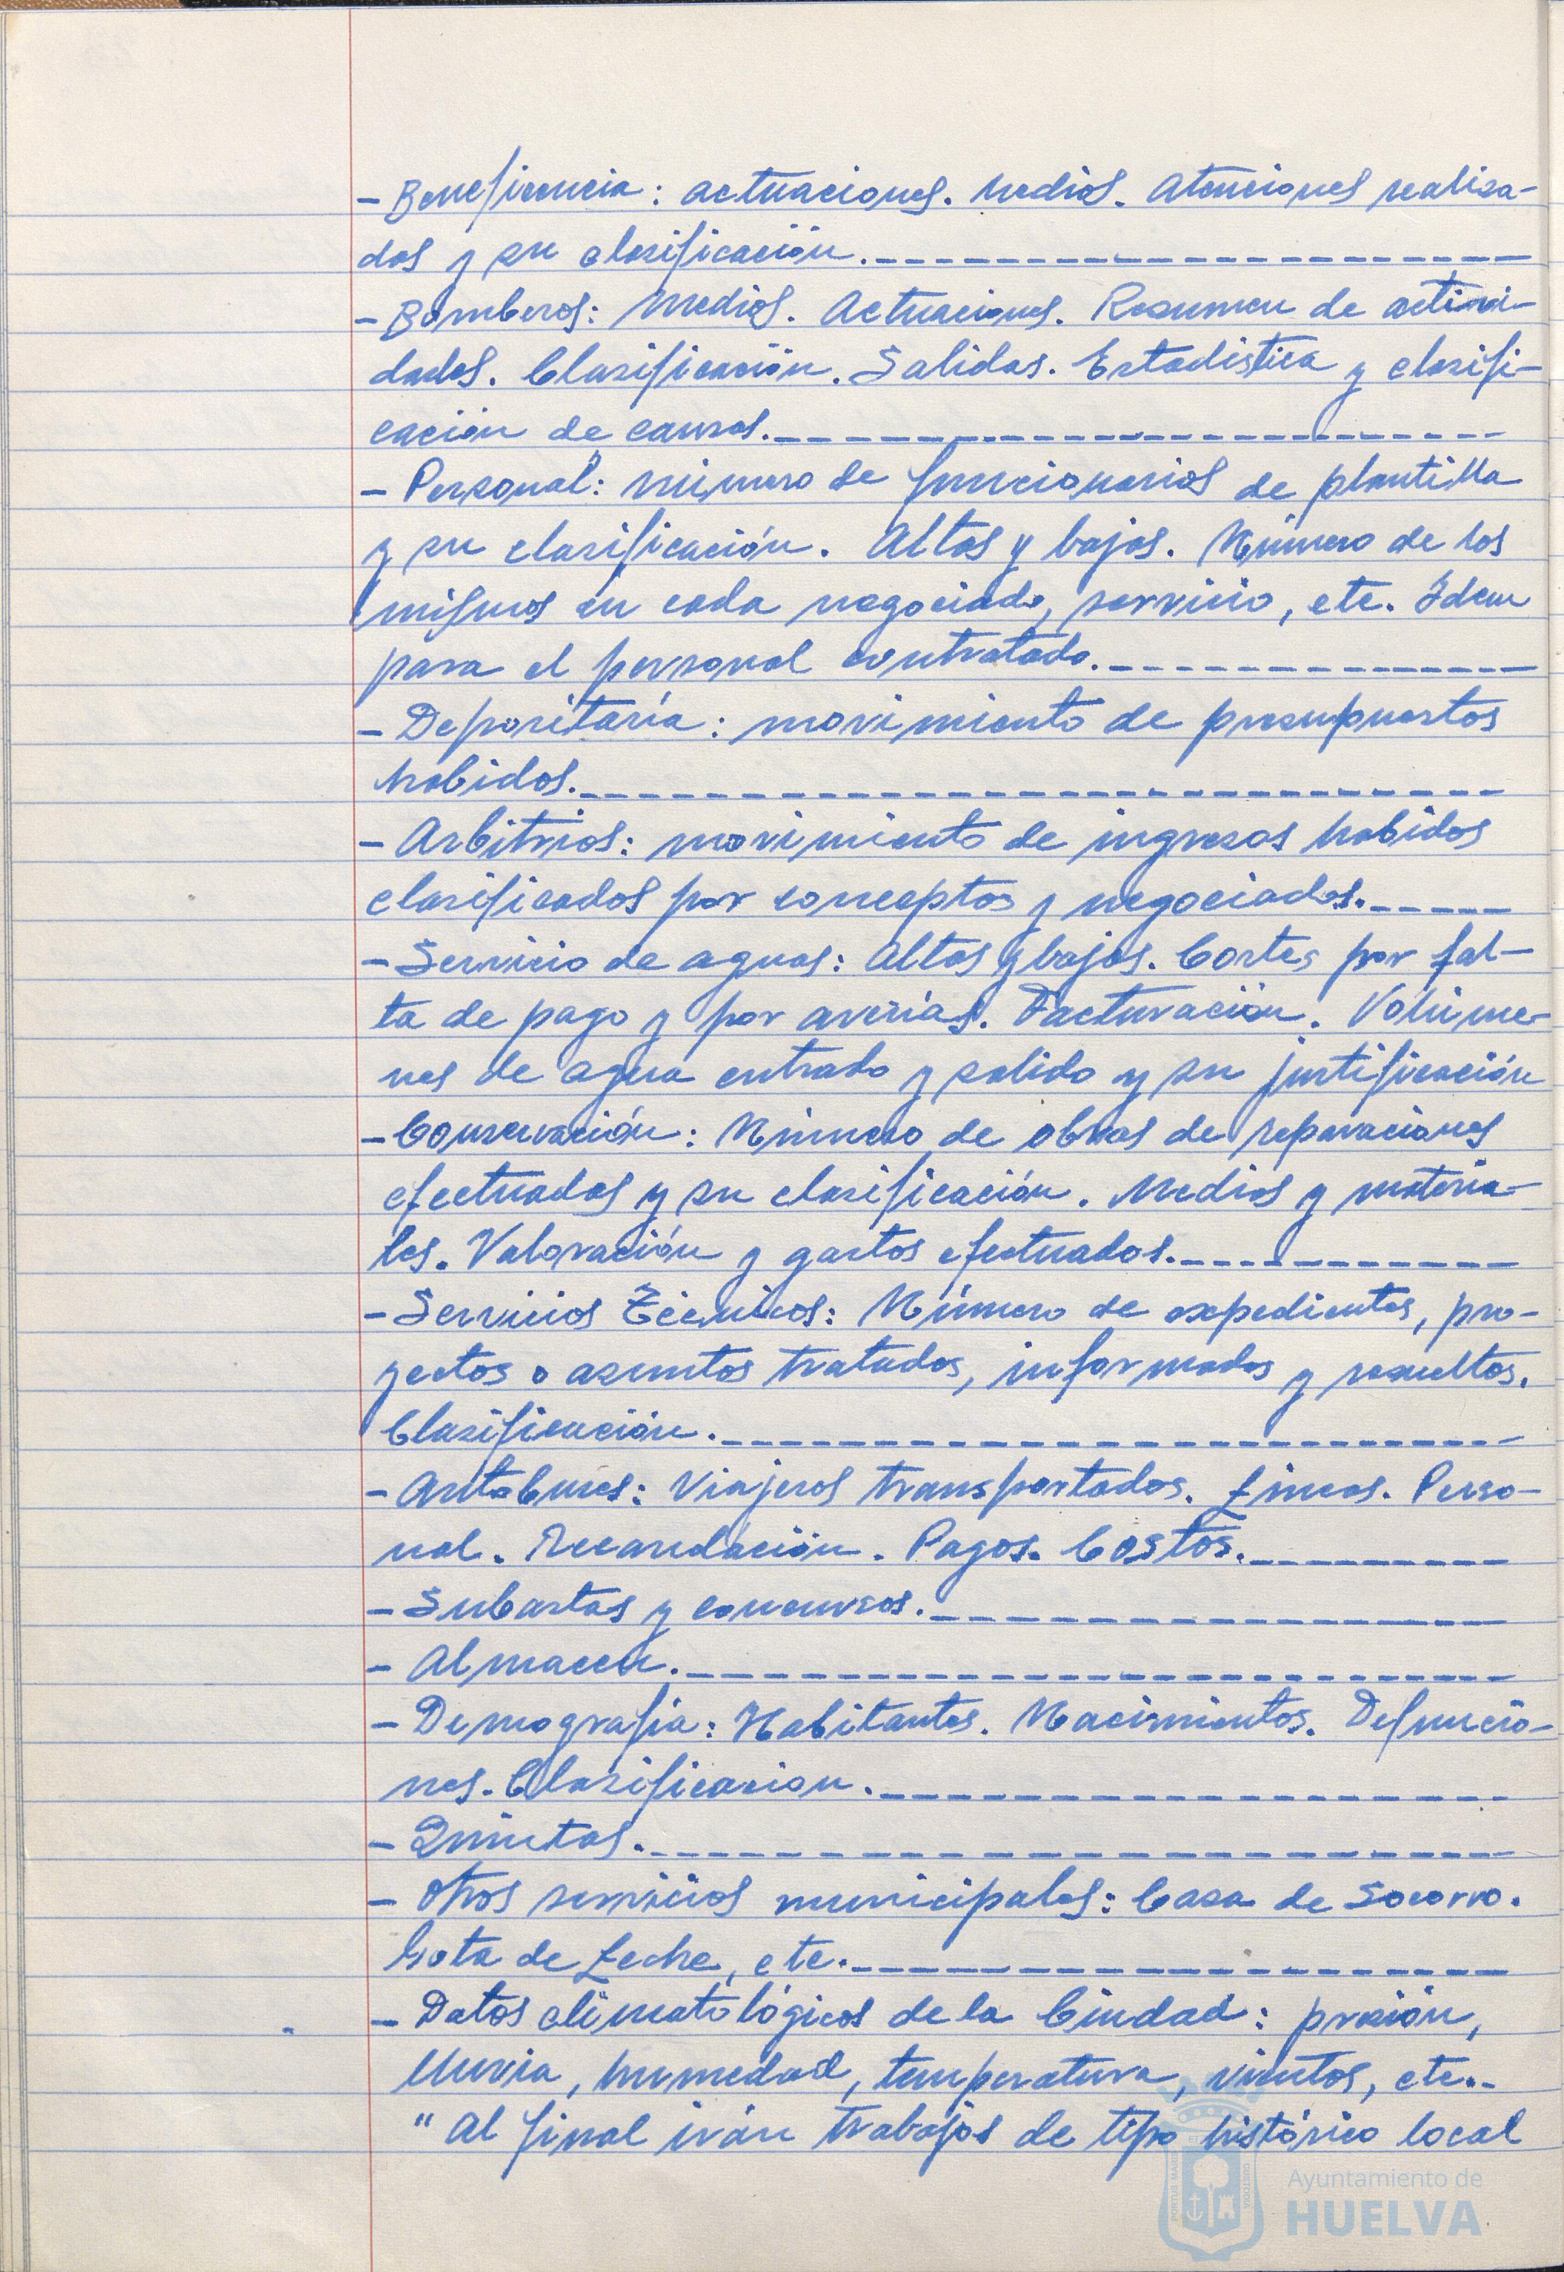 - Beneficencia: actuaciones. Medios. Atenciones realiza-
das y su clasificación.
- Bomberos: Medios. Actuaciones. Resumen de activi-
dades. Clasificación. Salidas. Estadística y clasifi-
cación de causas.
- Personal: número de funcionarios de plantilla
y su clasificación. Altas y bajas. Número de los
mismos en cada negociado, servicio, etc. Idem
para el personal contratado.
- Depositaría: movimiento de presupuestos
habidos.
- Arbitrios: movimiento de ingresos habidos
clasificados por conceptos y negociados.
- Servicio de aguas: Altas y bajas. Cortes por fal-
ta de pago y por averías. Facturación. Volúme-
nes de agua entrado y salido y su justificación
- Conservación: Número de obras de reparaciones
efectuadas y su clasificación. Medios y materia-
les. Valoración y gastos efectuados.
- Servicios Técnicos: Número de expedientes, pro-
yectos o asuntos tratados, informados y resueltos.
Clasificación.
- Autobuses: Viajeros transportados. Líneas. Perso-
nal. Recaudación. Pagos. Costos.
- Subastas y concursos.
- Almacen.
- Demografía: Habitantes. Nacimientos. Defuncio-
nes. Clasificacion.
- Quintas.
- Otros servicios municipales: Casa de Socorro.
Gota de Leche, etc.
- Datos climatológicos de la Ciudad: presión,
lluvia, humedad, temperatura, vientos, etc.
" Al final irán trabajos de tipo histórico local
Ayuntamiento de
HUELVA